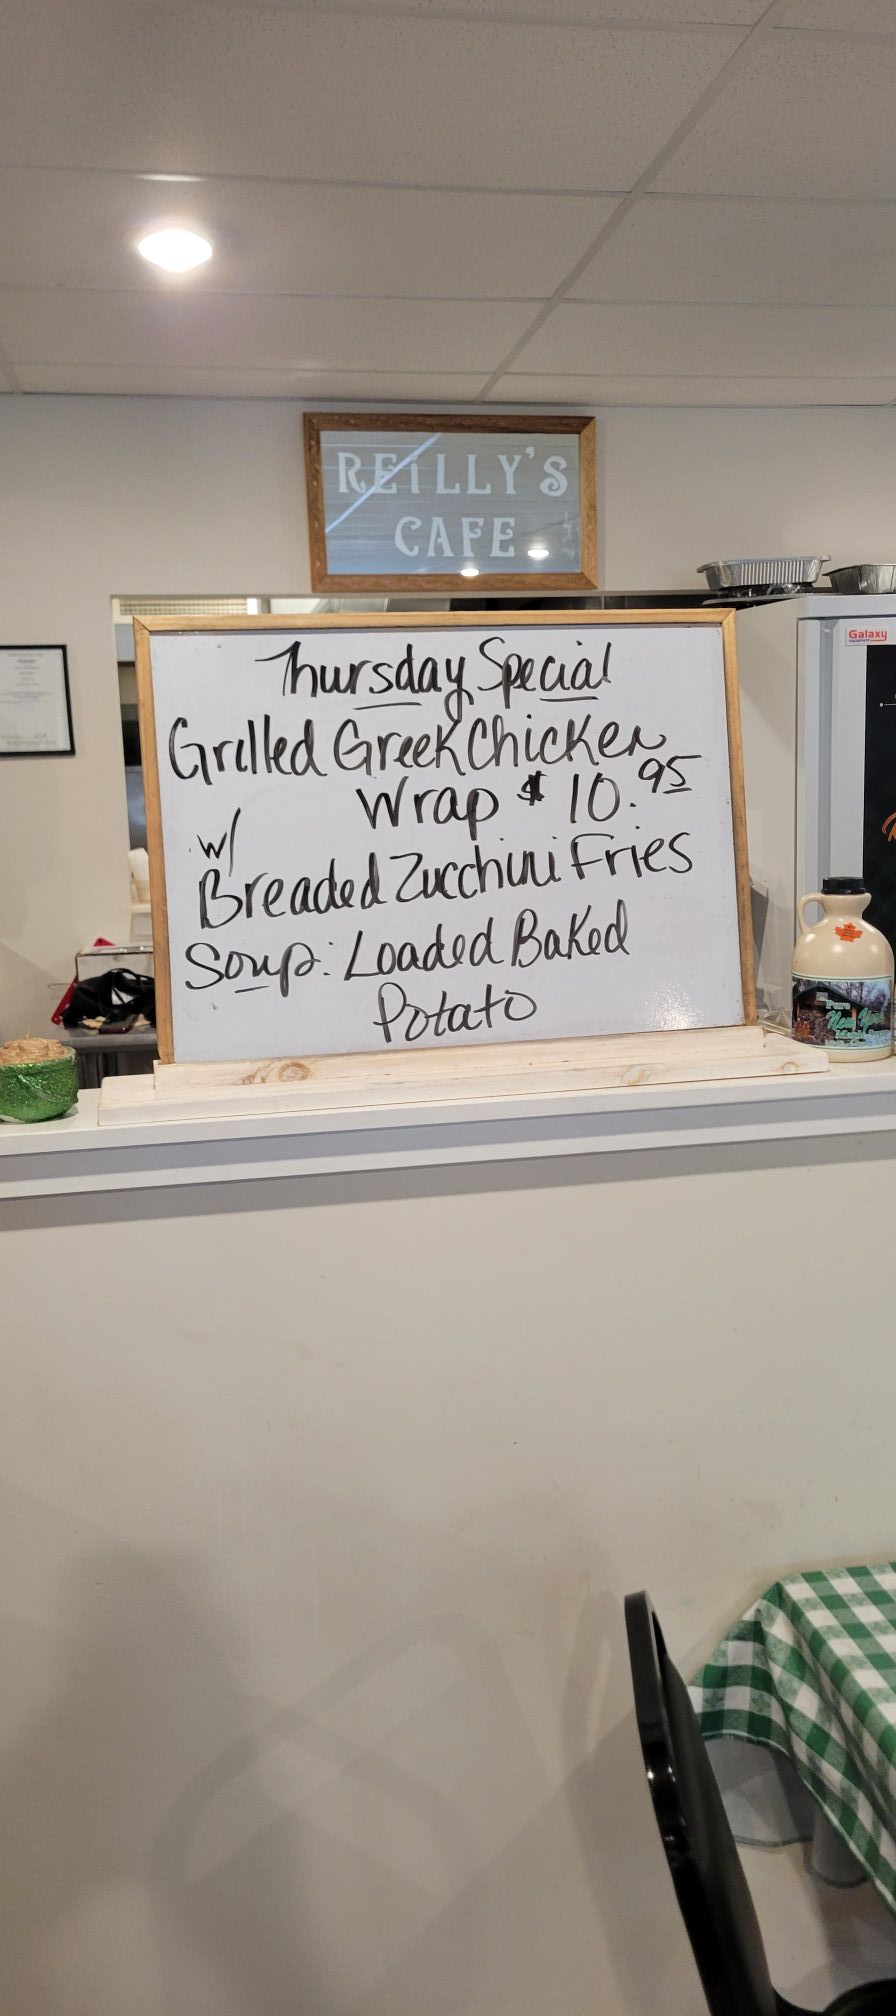 REiLLY'S
CAFE
Galaxy
Thursday Special
Grilled Greek Chicken
Wrap $10.95
w/
Breaded Zucchini Fries
Soup: Loaded Baked
Potato
Pure
New York